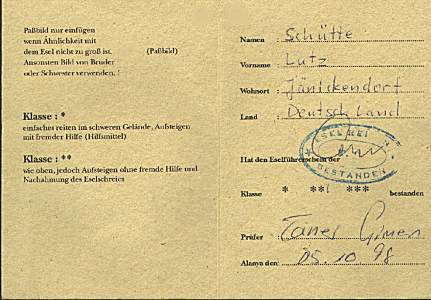 Paßbild nur einfügen
wenn Ähnlichkeit mit
dem Esel nicht zu groß ist. (Paßbild)
Ansonsten Bild von Bruder
oder Schwester verwenden. !
Klasse : *
einfaches reiten im schweren Gelände, Aufsteigen
mit fremder Hilfe (Hilfsmittel)
Klasse : **
wie oben, jedoch Aufsteigen ohne fremde Hilfe und
Nachahmung des Eselschreies
Namen : Schütte
Vorname : Lutz
Wohnort : Jänickendorf
Land : Deutschland
ESELREI
BESTANDEN
Hat den Eselführerschein der
Klasse * ** ***  bestanden
Prüfer : Taner
Alanya den: 05.10.98